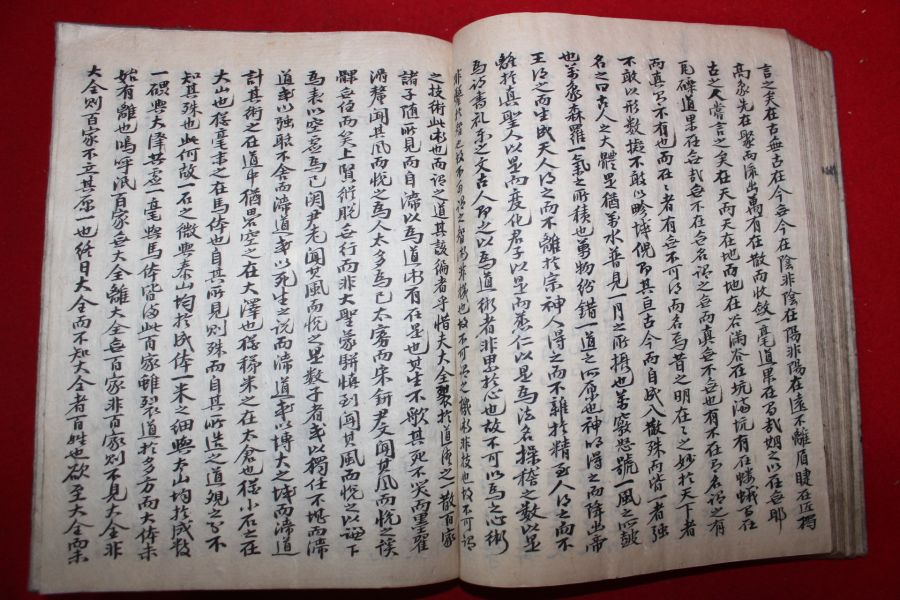 言之矣在古無古在今無今在陰非陰在陽非陽在遠不離眉睫在近獨
高象先在聚而流出萬有在散而收斂一毫道果在有哉期之以在無耶
古之人常言之矣在天而天在地而地在谷滿谷在坑滿坑有在螻蟻有在
瓦礫道果在無哉無不在無名謂之無而真無不無也有不在有名謂之有
而真有不有也而在々者有無不可得而名焉昔之明在々之妙於天下者
不敢以形數擬不敢以畛域倪即其亘古今而自成入散殊而皆一者強
名之曰古人之大體是猶萬水普見一月之所攝也萬竅怒號一風之所鼓
也萬象森羅一氣之所積也萬物紛錯一道之所原也神以得之而降出帝
王得之而生成天人得之而不離於宗神人得之而不離於精至人得之而不
離於真聖人以是而變化君子以是而慈仁以是為法名操稽之數以是
為詩書礼樂之文古人即之以為道術者非思於心也故不可以為之心術
也故不可謂之智術非機也故不可謂之機術非技也故不可謂
之技術此術也而謂之道其該徧者乎惜夫大全裂於道德之一散百家
諸子隨所見而自滯以為道術有在是也其生不歌其死不哭而墨翟
滑釐聞其風而悅之為人太多為己太寡而宋鈃尹文聞其風而悅之謑
髁無任而笑上賢縱脫無行而非大聖蒙駢慎到聞其風而悅之以謙下
為表以空虛為己関尹老聞其風而悅之是數子者或以獨任不堪而滯
道或以強聒不舍而滯道或以死生之說而滯道或以博大之域而滯道
計其術之在道中猶罍空之在大澤也猶稊米之在太倉也猶小石之在
大山也猶毫末之在馬体也自其所見則殊而自其所造之道觀之不
知其殊也此何故一石之微與泰山均於成体一米之細與太山均於成數
一礨與大澤共虛一毫與馬体皆備此百家雖裂道於多方而大体未
始有離也嗚呼泯百家無大全離大全無百家非百家則不見大全非
大全則百家不立其原一也終日大全而不知大全者百姓也欲至大全而未